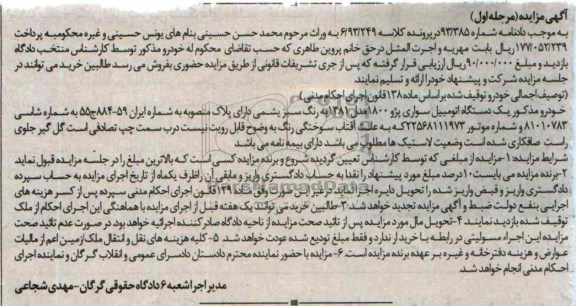 آگهی مزایده (مرحله اول)
به موجب دادنامه شماره ۹۳/۳۸۵ در پرونده کلاسه ۶/۹۳/۲۴۹ به وراث مرحوم محمد حسن حسینی بنام های یونس حسینی و غیره محکوم به پرداخت
۱۷۷/۰۵۲/۲۳۹ ریال بابت مهریه و اجرت المثل در حق خانم پروین طاهری که حسب تقاضای محکوم له خودرو مذکور توسط کارشناس منتخب دادگاه
بازدید و مبلغ ۹۰/۰۰۰/۰۰۰ ریال ارزیابی قرار گرفته که پس از جری تشریفات قانونی از طریق مزایده حضوری بفروش می رسد طالبین خرید می توانند در
جلسه مزایده شرکت و پیشنهاد خود را ارائه و تسلیم نمایند
(توصیف اجمالی خودرو توقیف شده بر اساس ماده ۱۳۸ قانون اجرای احکام مدنی)
خودرو مذکور یک دستگاه اتومبیل سواری پژو ۱۸۰۰ مدل ۱۳۸۱ به رنگ سبز یشمی دارای پلاک منصوبه به شماره ایران ۵۹-۸۸۴ج۵۵ به شماره شاسی
۸۱۰۱۰۷۸۳ و شماره موتور ۲۲۵۶۸۱۱۱۹۷۳ که به علت آفتاب سوختگی رنگ به وضوح قابل رویت نیست درب سمت چپ تصادفی است گل گیر جلوی
راست صافکاری شده است وضعیت لاستیک ها مطلوب می باشد دارای بیمه نامه می باشد
شرایط مزایده ۱- مزایده از مبلغی که توسط کارشناس تعیین گردیده شروع و برنده مزایده کسی است که بالاترین مبلغ را در جلسه مزایده قبول نماید
۲- برنده مزایده می بایست ۱۰ درصد مبلغ مورد پیشنهاد را نقدا به حساب دادگستری واریز و مابقی آن را ظرف یکماه از تاریخ اجرای مزایده به حساب سپرده
دادگستری واریز و قبض واریز شده را تحویل دایره اجرا نماید در ماده ۱۲۹ قانون اجرای احکام مدنی سپرده پس از کسر هزینه های
اجرایی بنفع دولت ضبط و آگهی مزایده تجدید خواهد شد ۳- طالبین خرید می توانند یک هفته قبل از اجرای مزایده با هماهنگی این اجرای احکام از ملک
توقیف شده بازدید نمایند. ۴- تحویل مال مورد مزایده پس از تائید صحت مزایده از ناحیه دادگاه صادر کننده اجرائیه خواهد بود. در صورت عدم تائید صحت
مزایده این اجراء مسولیتی در رابطه با خریدار ندارد و فقط مبلغ تودیع شده عودت خواهد شد. ۵- کلیه هزینه های نقل و انتقال ملک از مین اعم از مالیات
عوارض و هزینه دفترخانه و غیره بر عهده برنده مزایده است. ۶- مزایده با حضور نماینده محترم دادستان دادسرای عمومی و انقلاب گرگان و نماینده اجرای
احکام مدنی انجام خواهد شد.
مدیر اجرا شعبه ۶ دادگاه حقوقی گرگان - مهدی شجاعی